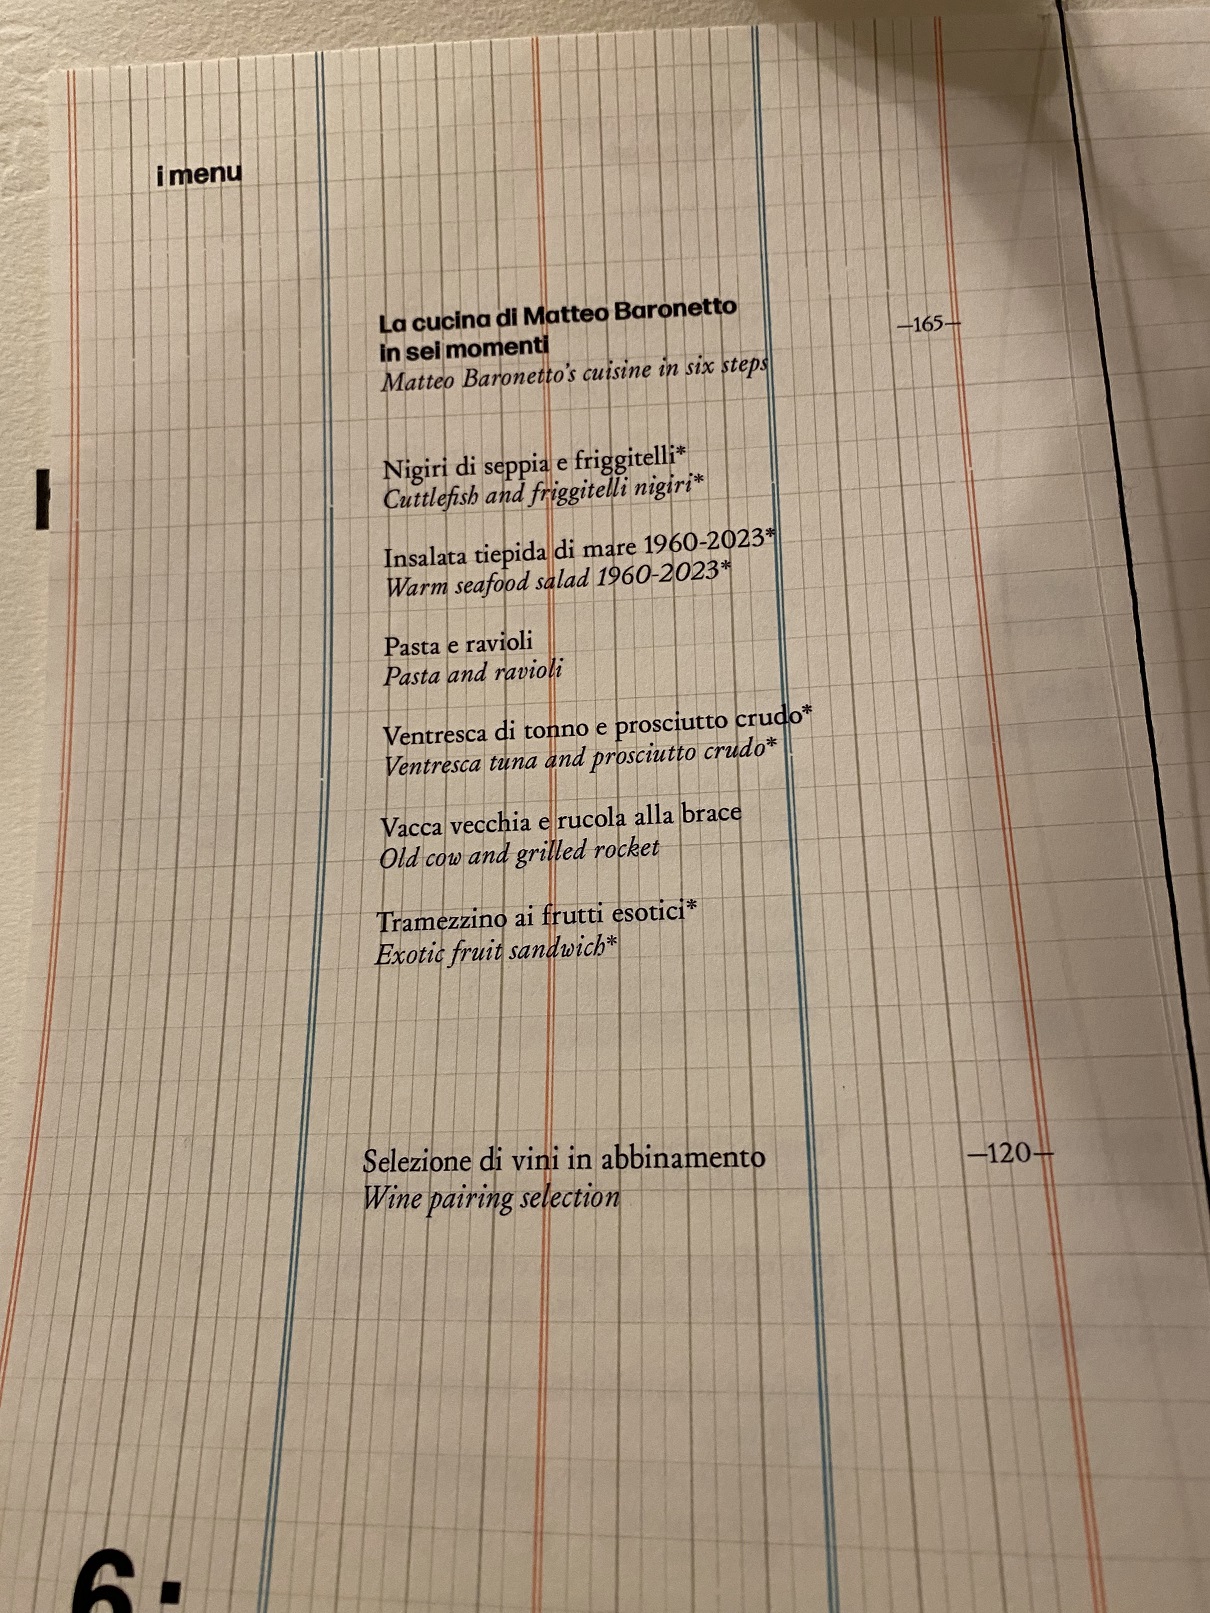 i menu
La cucina di Matteo Baronetto
in sei momenti
—165—
Matteo Baronetto's cuisine in six steps
Nigiri di seppia e friggitelli*
Cuttlefish and friggitelli nigiri*
Insalata tiepida di mare 1960-2023*
Warm seafood salad 1960-2023*
Pasta e ravioli
Pasta and ravioli
Ventresca di tonno e prosciutto crudo*
Ventresca tuna and prosciutto crudo*
Vacca vecchia e rucola alla brace
Old cow and grilled rocket
Tramezzino ai frutti esotici*
Exotic fruit sandwich*
Selezione di vini in abbinamento
—120—
Wine pairing selection
6.